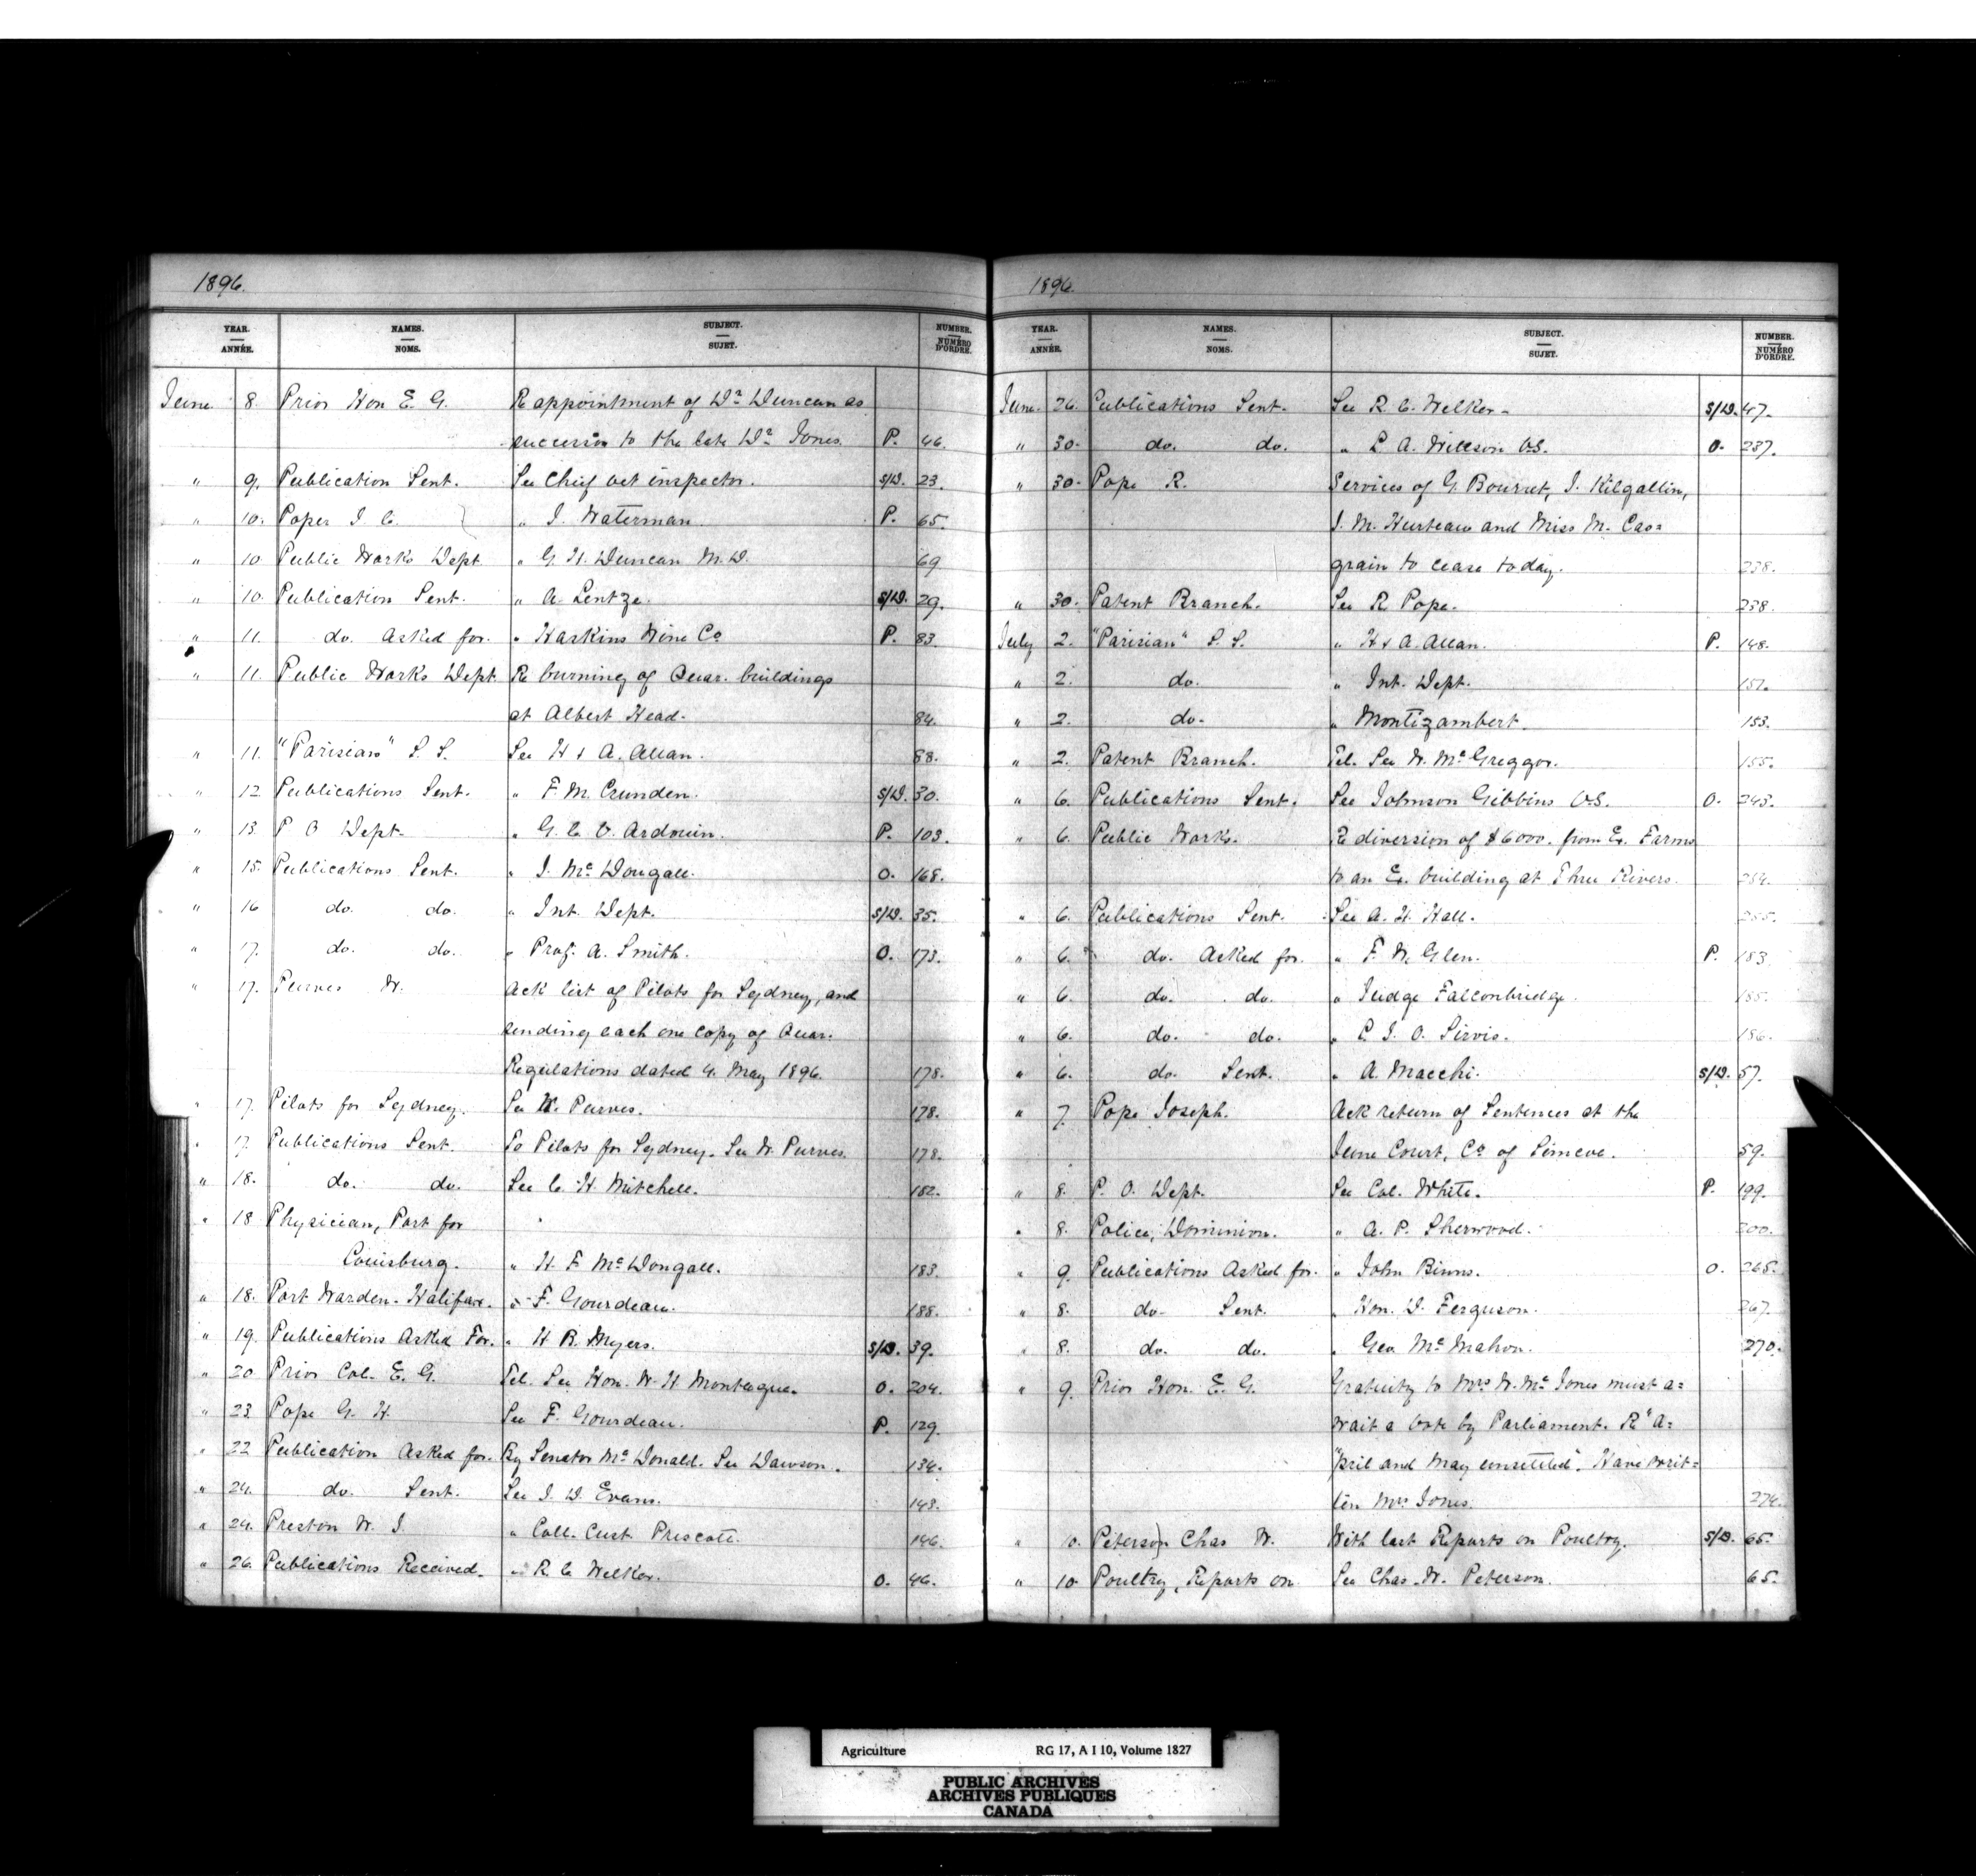 1896.
YEAR. ANNÉE. NAMES. NOMS. SUBJECT. SUJET. NUMBER. NUMÉRO D'ORDRE.
June 8. Prior Hon E. G. Re appointment of Dr Duncan as
successor to the late Dr Jones. P. 46.
" 9. Publication Sent. See Chief vet inspector. S/D. 23.
" 10. Poper J. C. " J. Waterman. P. 65.
" 10 Public Works Dept " G. H. Duncan M.D. 69
" 10. Publication Sent. " A. Lentze. S/D. 29.
" 11. do. Asked for. " Haskins Wine Co P. 83.
" 11. Public Works Dept. Re burning of Quar. buildings
at Albert Head. 84.
" 11. "Parisian" S. S. See H & A. Allan. 88.
" 12 Publications Sent. " F. M. Crunden. S/D. 30.
" 13. P O Dept. " G. C. V. Ardouin. P. 103.
" 15. Publications Sent. " J. McDougall. O. 168.
" 16 do. do. " Int. Dept. S/D. 35.
" 17. do. do. " Prof. A. Smith. O. 173.
" 17. Purves W. Ack list of Pilots for Sydney, and
sending each one copy of Quar.
Regulations dated 4. May 1896. 178.
" 17. Pilots for Sydney. See W. Purves. 178.
" 17. Publications Sent. To Pilots for Sydney. See W. Purves. 178.
" 18. do. do. See C. H. Mitchell. 182.
" 18 Physician, Port for "
Louisburg. " H. F. McDougall. 183.
" 18. Port Warden. Halifax. " F. Gourdeau. 188.
" 19. Publications Asked For. " H B. Myers. S/D. 39.
" 20. Prior Col. E. G. Tel. See Hon. W. H Montague. O. 204.
" 23. Pope G. H. See F. Gourdeau. P. 129.
" 22 Publication Asked for. By Senator McDonald. See Dawson. 134.
" 24. do. Sent. See J. D. Evans. 143.
" 24. Preston W. J. " Coll. Cust. Prescott. 146.
" 26. Publications Received. " R C Welker. O. 46.
1896.
YEAR. ANNÉE. NAMES. NOMS. SUBJECT. SUJET. NUMBER. NUMÉRO D'ORDRE.
June. 26. Publications Sent. See R. C. Welker. S/D. 47.
" 30. do. do. " L. A. Willson V.S. O. 237.
" 30. Pope R. Services of G. Bourret, J. Kilgallin,
J. M. Hurteau and Miss M. Cas=
grain to cease today. 238.
" 30. Patent Branch. See R Pope. 238.
July 2. "Parisian" S. S. " H & A. Allan. P. 148.
" 2. do. " Int. Dept. 151.
" 2. do. " Montizambert. 153.
" 2. Patent Branch. Tel. See W. McGreggor. 155.
" 6. Publications Sent. See Johnson Gibbins V.S. O. 243.
" 6. Public Works. Re diversion of $6000. from Ex. Farms
to an Ex. building at Three Rivers. 254.
" 6. Publications Sent. See A. H. Hall. 255.
" 6. do. Asked for. " F. W. Glen. P. 183
" 6. do. do. " Judge Falconbridge. 185.
" 6. do. do. " C. J. O. Sirvis. 186.
" 6. do. Sent. " A. Macchi. S/D. 57.
" 7. Pope Joseph. Ack return of Sentences at the
June Court, Co of Simcoe. 59.
" 8. P. O. Dept. See Col. White. P. 199.
" 8. Police, Dominion. " A. P. Sherwood. 200.
" 9. Publications Asked for. " John Binns. O. 265.
" 8. do. Sent. " Hon. D. Ferguson. 267.
" 8. do. do. " Geo McMahon. 270.
" 9. Prior Hon. E. G. Gratuity to Mrs W. Mc Jones must a=
wait a vote by Parliament. R "A=
"pril and May unsettled". Have writ=
ten Mrs Jones. 274.
" 10. Peterson Chas W. With last Reports on Poultry. S/D. 65.
" 10 Poultry, Reports on See Chas. W. Peterson. 65.
Agriculture RG 17, A I 10, Volume 1827
PUBLIC ARCHIVES
ARCHIVES PUBLIQUES
CANADA